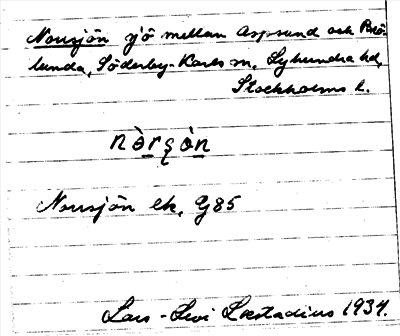 Norrsjön sjö mellan Aspsund och Brö-
lunda, Söderby-Karls sn, Lyhundra hd,
Stockholms l.
nòrʂòn
Norrsjön ek. G85
Lars-Levi Læstadius 1934.